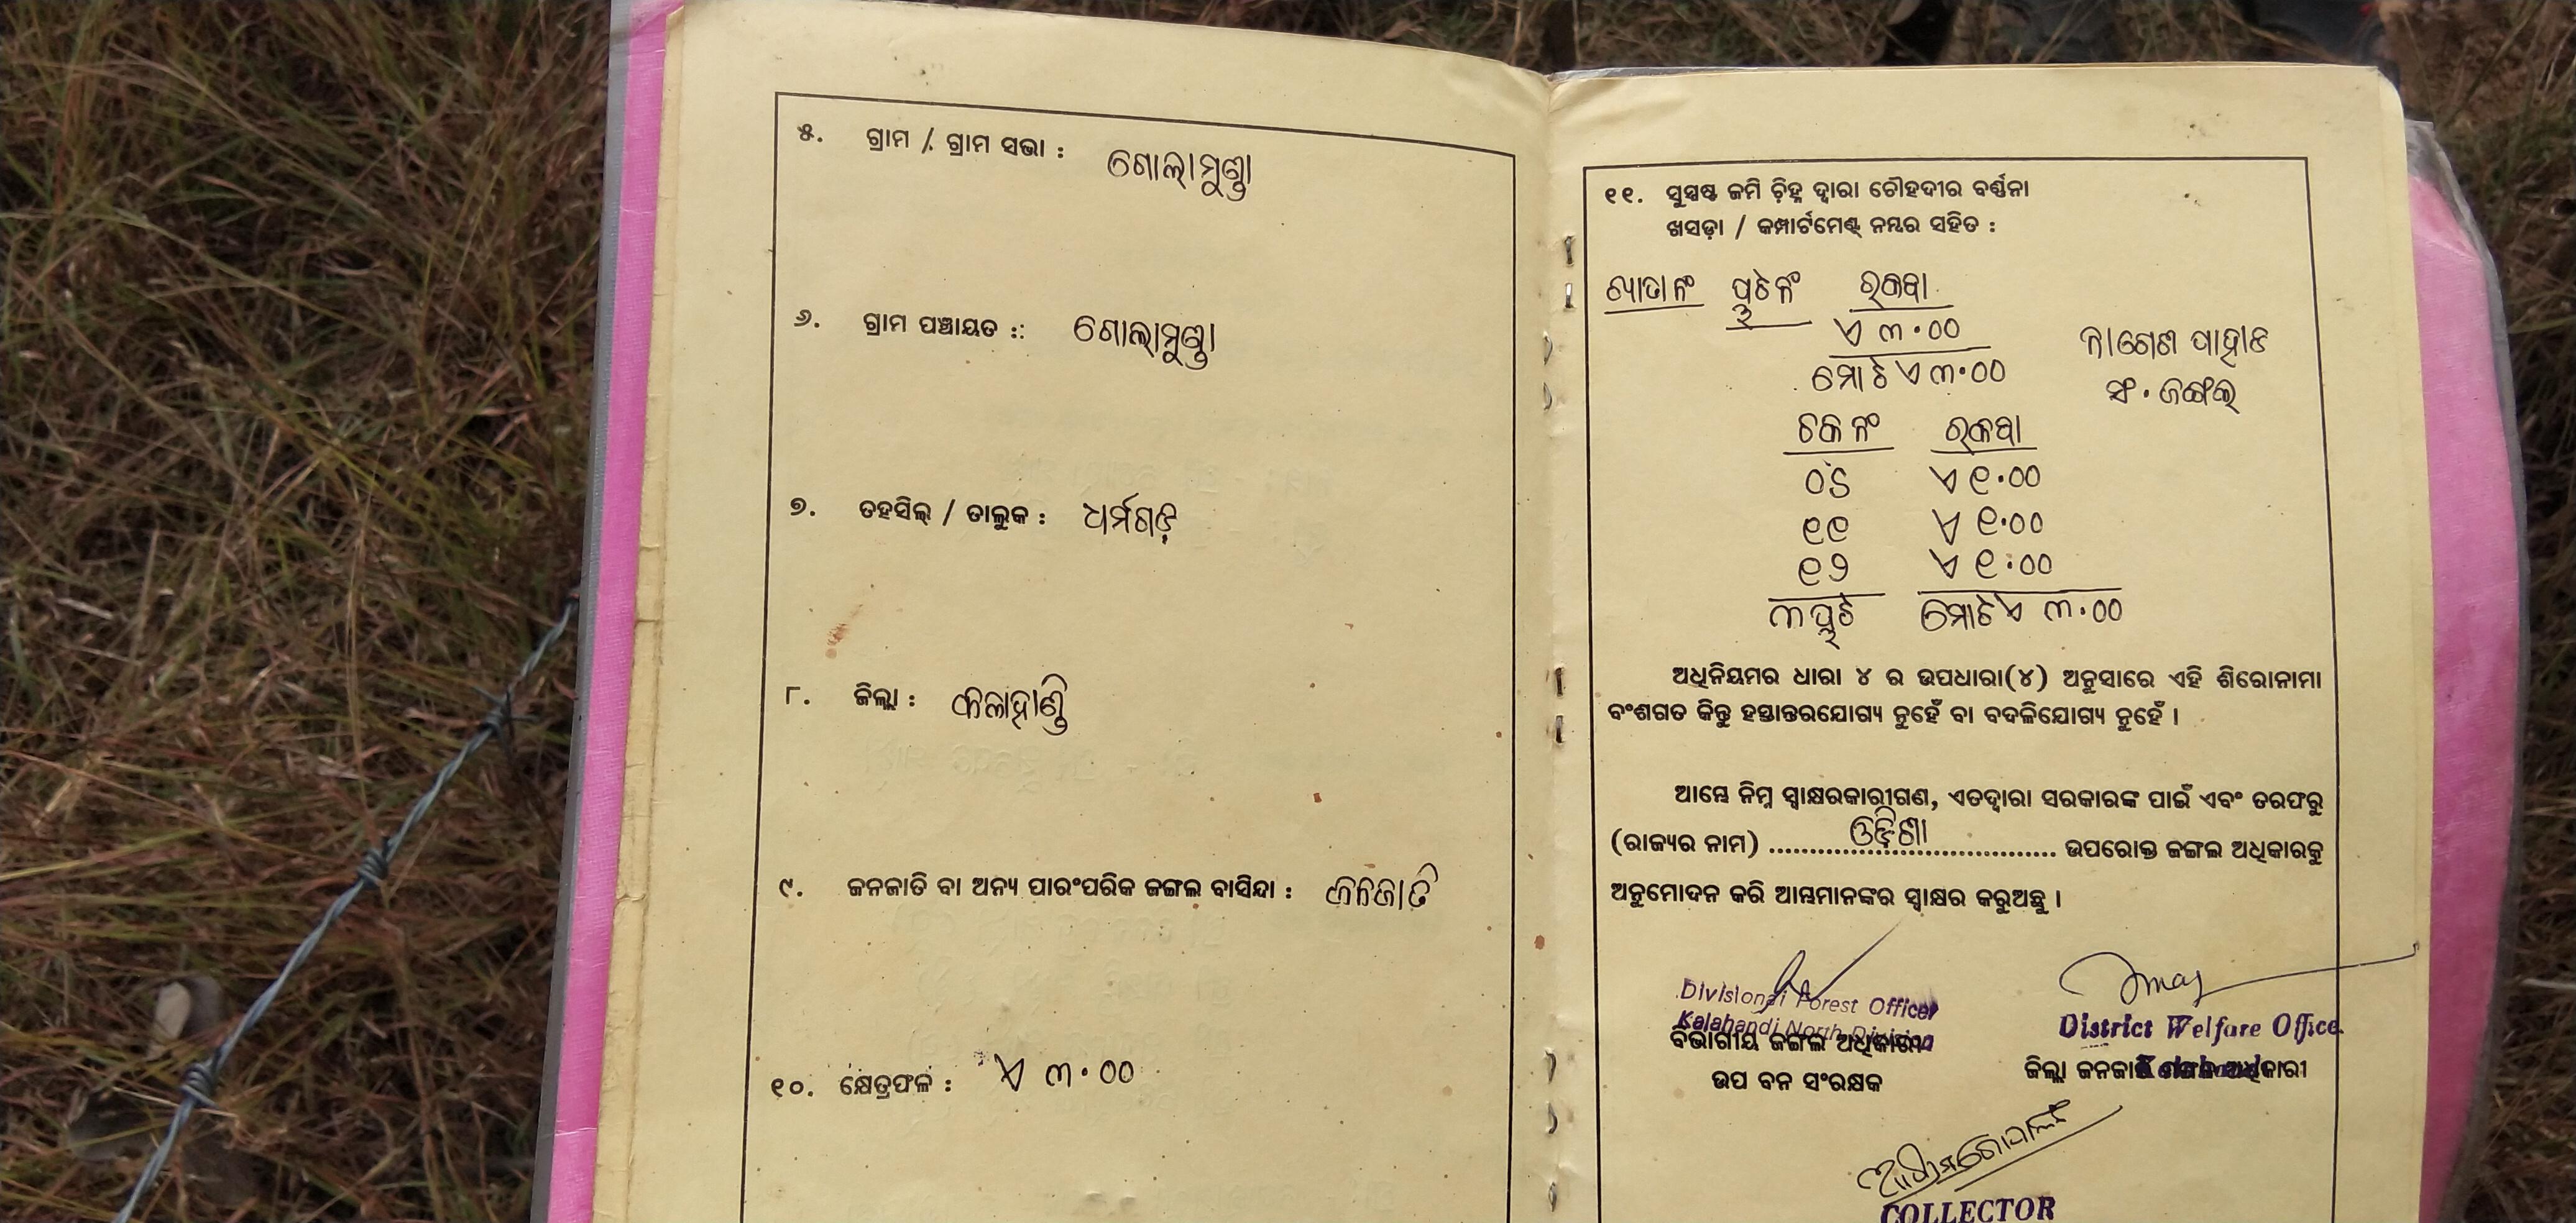 ୫. ଗ୍ରାମ / ଗ୍ରାମ ସଭା : ଗୋଲାମୁଣ୍ଡା
୬. ଗ୍ରାମ ପଞ୍ଚାୟତ :: ଗୋଲାମୁଣ୍ଡା
୭. ତହସିଲ୍ / ତାଲୁକ : ଧର୍ମଗଡ଼
୮. ଜିଲ୍ଲା : କଳାହାଣ୍ଡି
୯. ଜନଜାତି ବା ଅନ୍ୟ ପାରଂପରିକ ଜଙ୍ଗଲ ବାସିନ୍ଦା : ଜନଜାତି
୧୦. କ୍ଷେତ୍ରଫଳ : ଏ ୩.୦୦
୧୧. ସୁସ୍ପଷ୍ଟ ଜମି ଚ଼ିହ୍ନ ଦ୍ୱାରା ଚୌହଦୀର ବର୍ଣ୍ଣନା
ଖସଡ଼ା / କମ୍ପାର୍ଟମେଣ୍ଟ୍ ନମ୍ବର ସହିତ :
ଖାତା ନଂ ପ୍ଲଟ ନଂ ରକବା
ଏ ୩.୦୦
ମୋଟ ଏ ୩.୦୦
ପାହାଡ
ସଂ. ଜଙ୍ଗଲ
ଚକ ନଂ ରକବା
ଏ ୧.୦୦
୧୧ ଏ ୧.୦୦
୧୨ ଏ ୧.୦୦
୩ ପ୍ଲଟ ମୋଟ ଏ ୩.୦୦
ଅଧିନିୟମର ଧାରା ୪ ର ଉପଧାରା(୪) ଅନୁସାରେ ଏହି ଶିରୋନାମା
ବଂଶଗତ କିନ୍ତୁ ହସ୍ତାନ୍ତରଯୋଗ୍ୟ ନୁହେଁ ବା ବଦଳିଯୋଗ୍ୟ ନୁହେଁ ।
ଆମ୍ଭେ ନିମ୍ନ ସ୍ୱାକ୍ଷରକାରୀଗଣ, ଏତଦ୍ୱାରା ସରକାରଙ୍କ ପାଇଁ ଏବଂ ତରଫରୁ
(ରାଜ୍ୟର ନାମ) ଓଡ଼ିଶା ଉପରୋକ୍ତ ଜଙ୍ଗଲ ଅଧିକାରକୁ
ଅନୁମୋଦନ କରି ଆମ୍ଭମାନଙ୍କର ସ୍ୱାକ୍ଷର କରୁଅଛୁ ।
Divisional Forest Officer
Kalahandi North Division
ବିଭାଗୀୟ ଜଙ୍ଗଲ ଅଧିକାରୀ
ଉପ ବନ ସଂରକ୍ଷକ
District Welfare Office
ଜିଲ୍ଲା ଜନଜାତି ମଙ୍ଗଳ ଅଧିକାରୀ
COLLECTOR